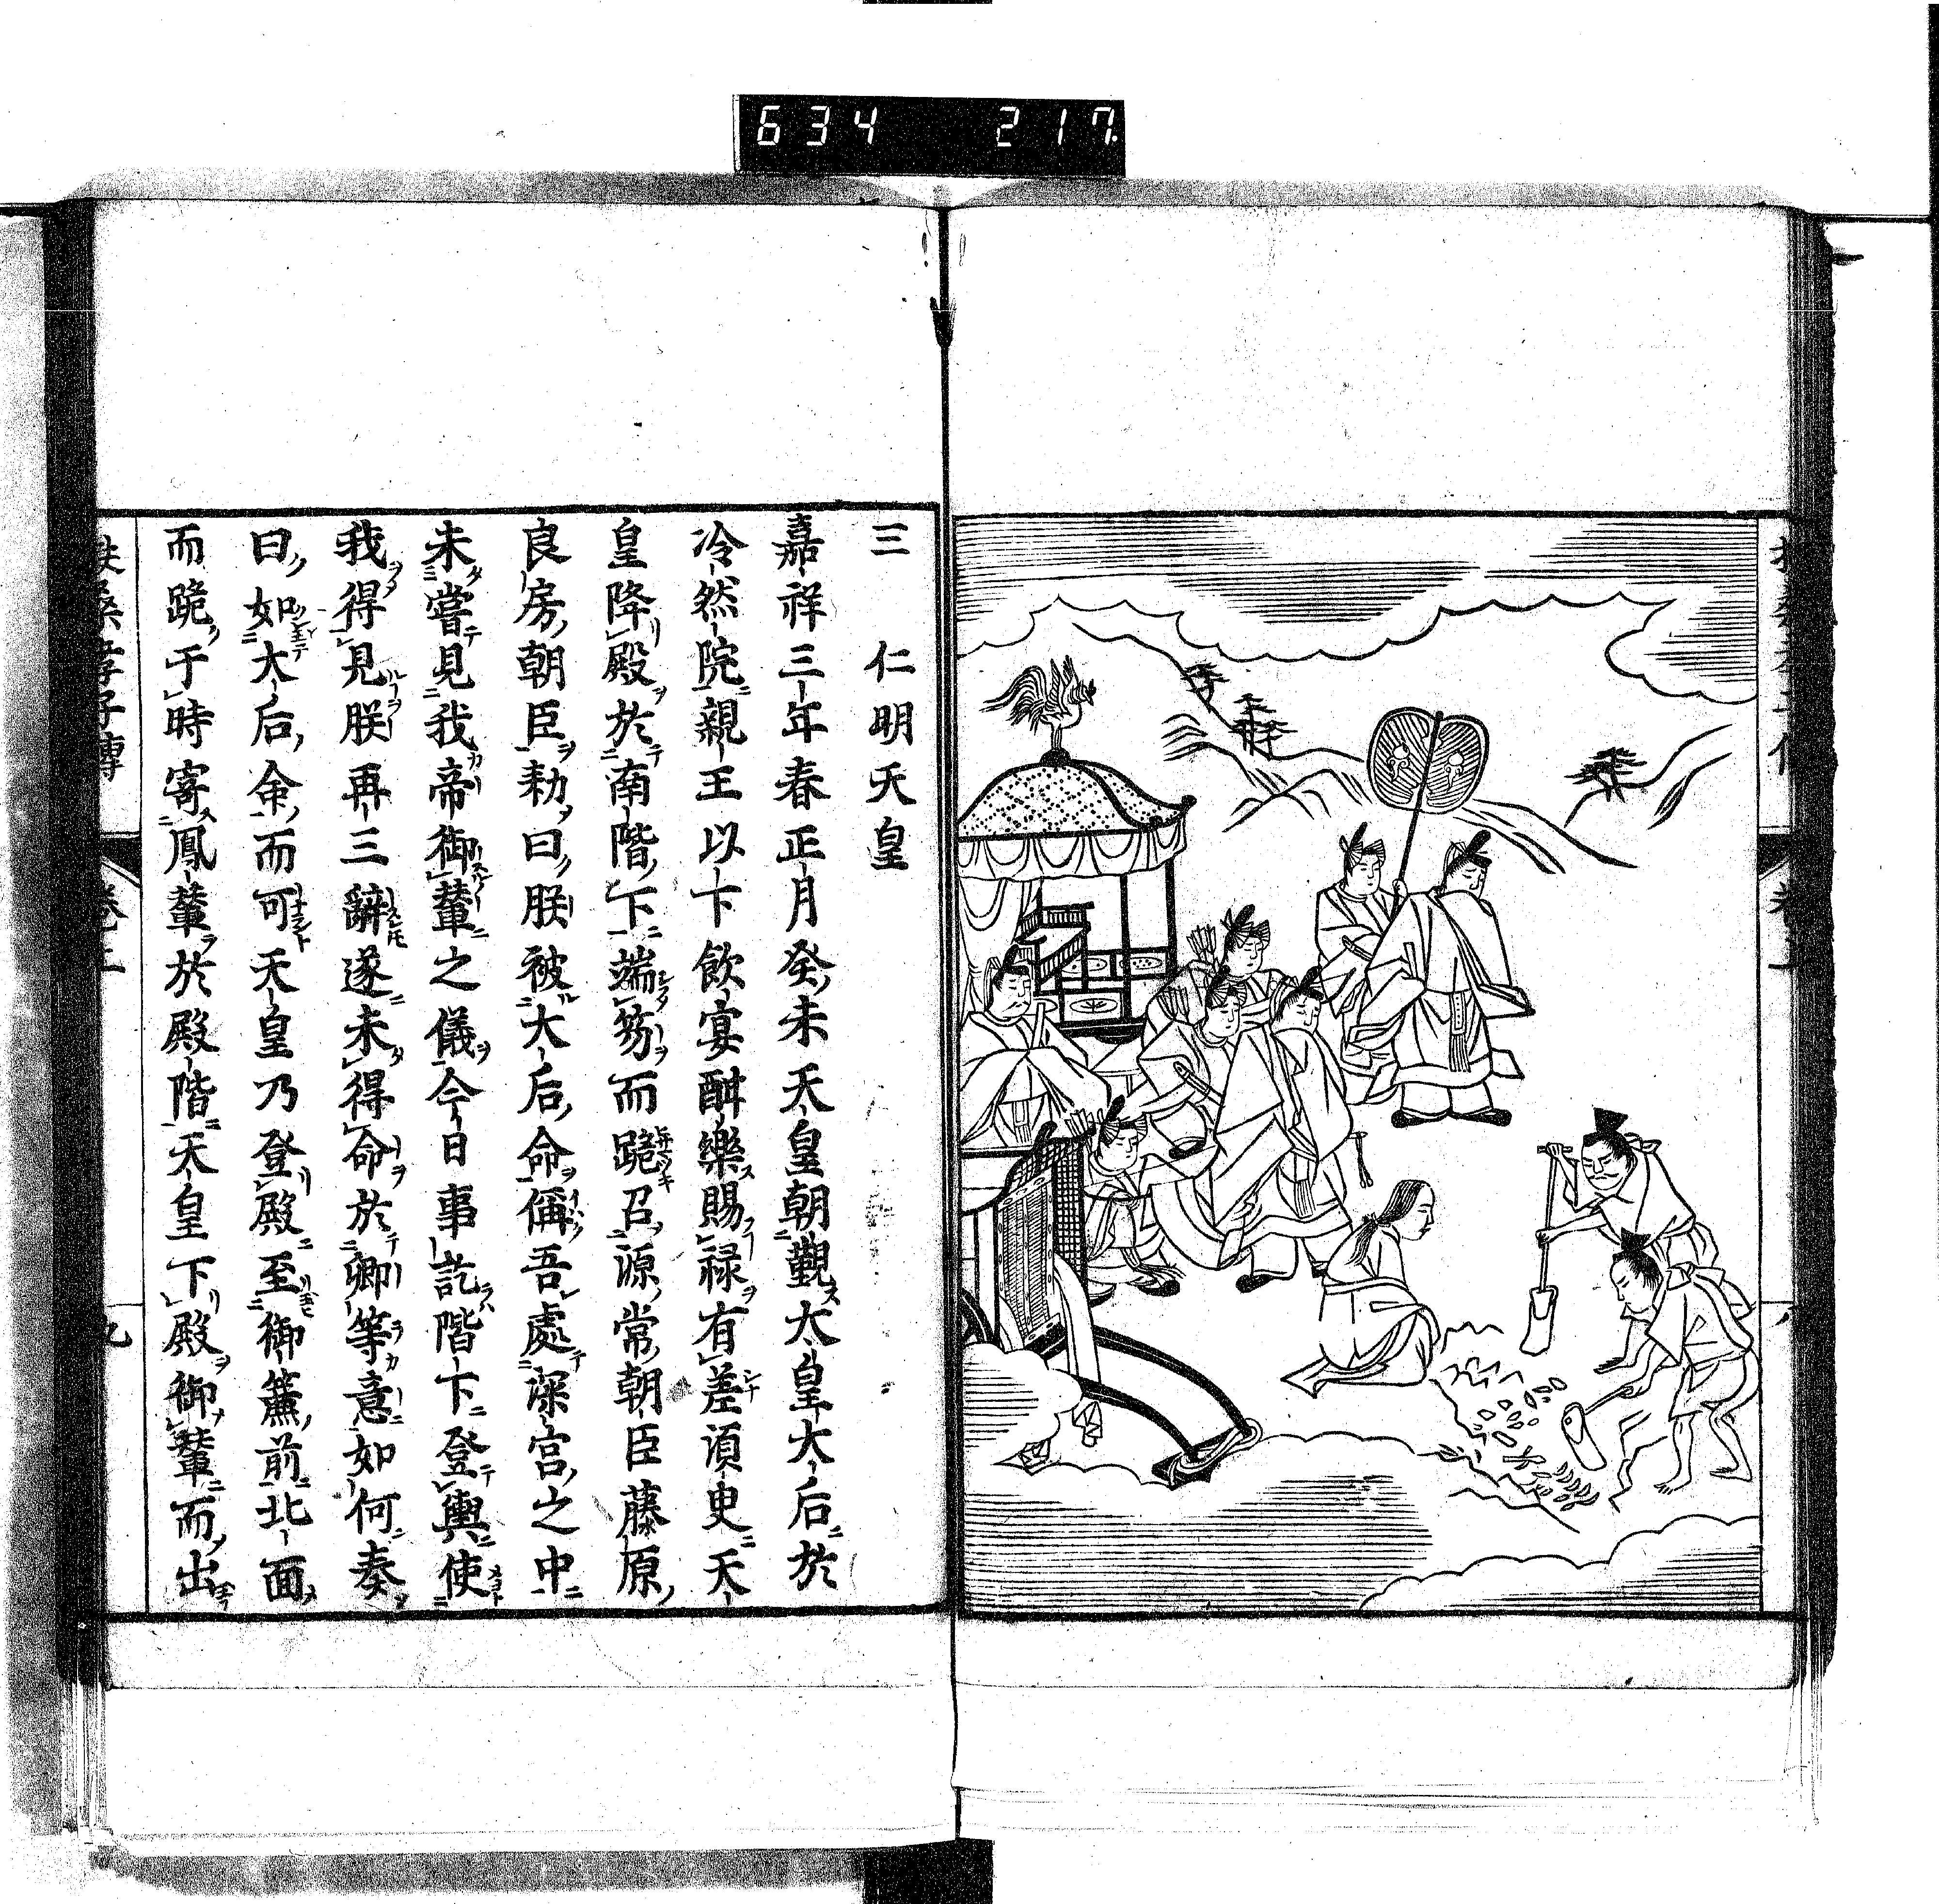 634 217
三 仁明天皇
嘉祥三年春正月癸未天皇朝覲太皇太后於
冷然院親王以下飲宴酣樂賜禄有差須臾天
皇降殿於南階下端笏而跪召源常朝臣藤原
良房朝臣勅曰朕被太后命偁吾處深宮之中
未嘗見我帝御輦之儀今日事訖階下登輿使
我得見朕再三辭遂未得命於卿等意如何奏
曰如太后命而可天皇乃登殿至御簾前北面
而跪于時寄鳳輦於殿階天皇下殿御輦而出
扶桑孝子傳 卷上 九